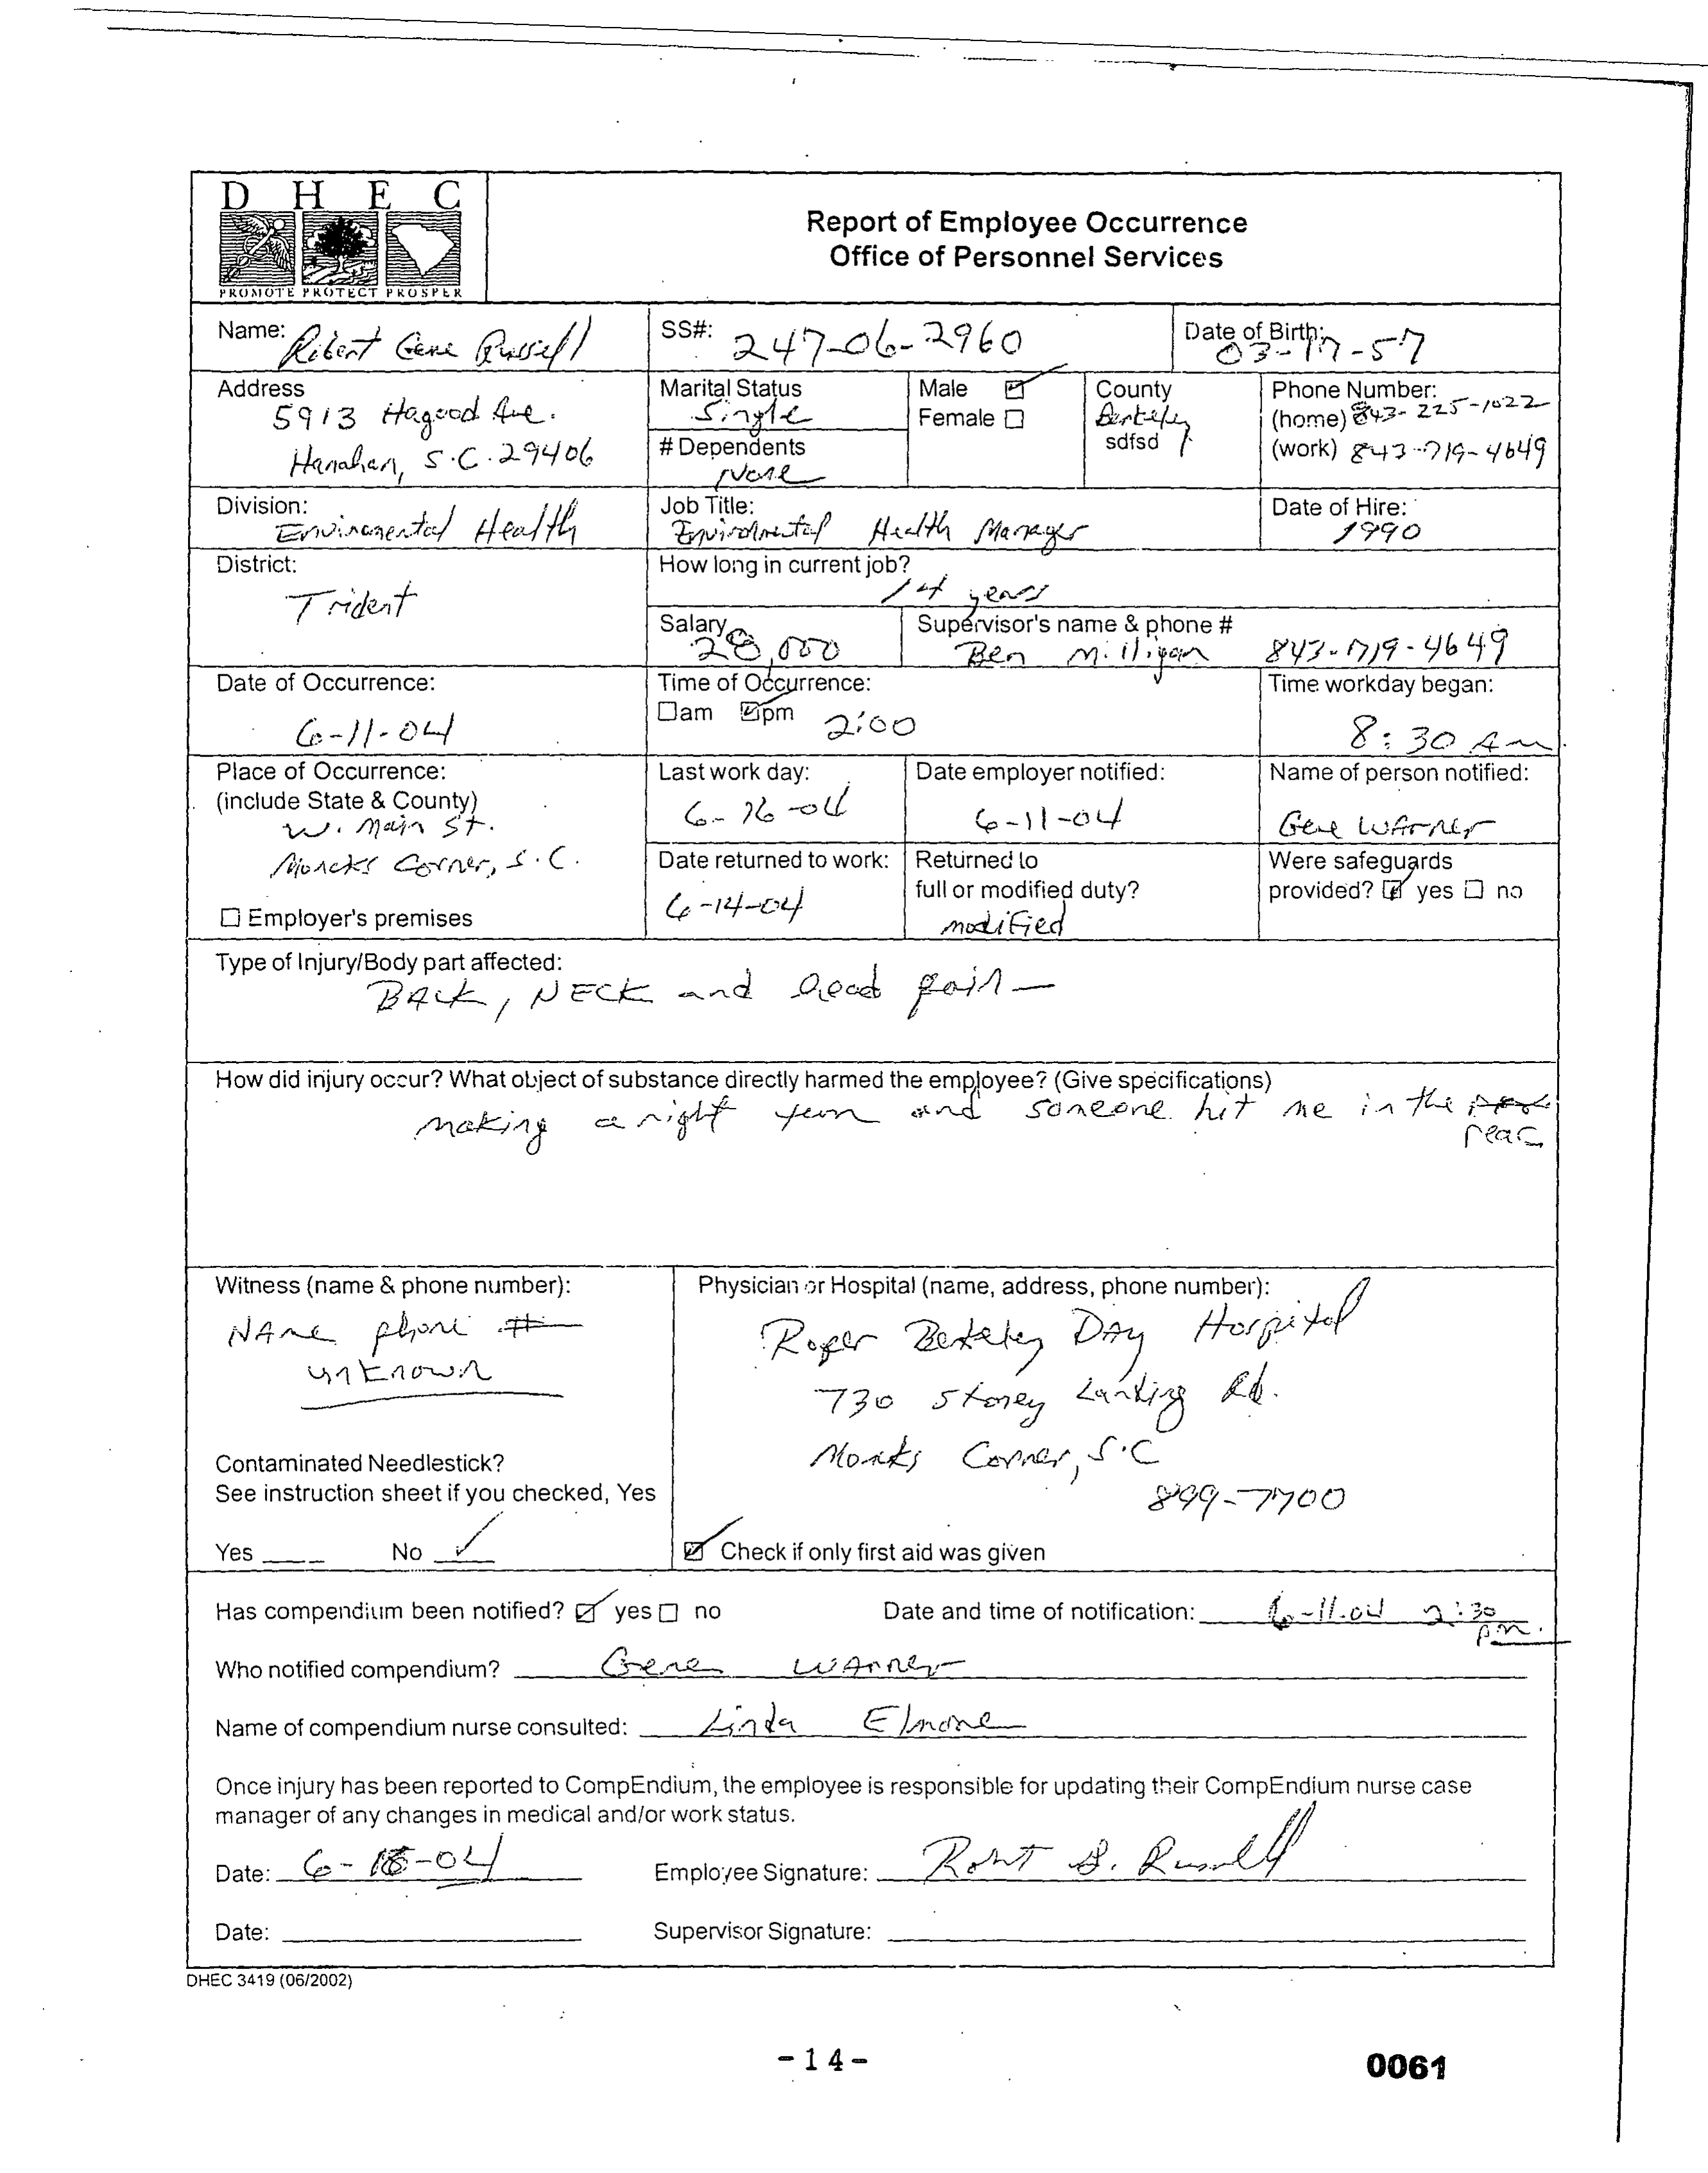 D H E C
PROMOTE PROTECT PROSPER
Report of Employee Occurrence
Office of Personnel Services
Name: Robert Gene Russell
SS#: 247-06-2960
Date of Birth: 03-17-57
Address
5913 Hagood Ave.
Hanahan, S.C. 29406
Marital Status
Single
# Dependents
None
Male ☑
Female ☐
County
Berkeley
sdfsd
Phone Number:
(home) 843-225-1022
(work) 843-719-4649
Division:
Enviromental Health
Job Title:
Enviromental Health Manager
Date of Hire:
1990
District:
Trident
How long in current job?
14 years
Salary
28,000
Supervisor's name & phone #
Ben Milligan 843-719-4649
Date of Occurrence:
6-11-04
Time of Occurrence:
☐am ☑pm 2:00
Time workday began:
8:30 Am
Place of Occurrence:
(include State & County)
W. Main St.
Moncks Corner, S.C.
☐ Employer's premises
Last work day:
6-16-04
Date employer notified:
6-11-04
Name of person notified:
Gene Warner
Date returned to work:
6-14-04
Returned to
full or modified duty?
modified
Were safeguards
provided? ☑ yes ☐ no
Type of Injury/Body part affected:
Back, NECK and head pain
How did injury occur? What object of substance directly harmed the employee? (Give specifications)
making a right turn and someone hit me in the
rear
Witness (name & phone number):
Name phone #
unknown
Contaminated Needlestick?
See instruction sheet if you checked, Yes
Yes ____ No ✓
Physician or Hospital (name, address, phone number):
Roper Berkeley Day Hospital
730 Stoney Landing Rd.
Monks Corner, S.C
899-7700
☑ Check if only first aid was given
Has compendium been notified? ☑ yes ☐ no
Date and time of notification: 6-11-04 2:30
p.m.
Who notified compendium? Gene Warner
Name of compendium nurse consulted: Linda Elmore
Once injury has been reported to CompEndium, the employee is responsible for updating their CompEndium nurse case
manager of any changes in medical and/or work status.
Date: 6-18-04 Employee Signature: Robert G. Russell
Date: Supervisor Signature:
DHEC 3419 (06/2002)
-14-
0061